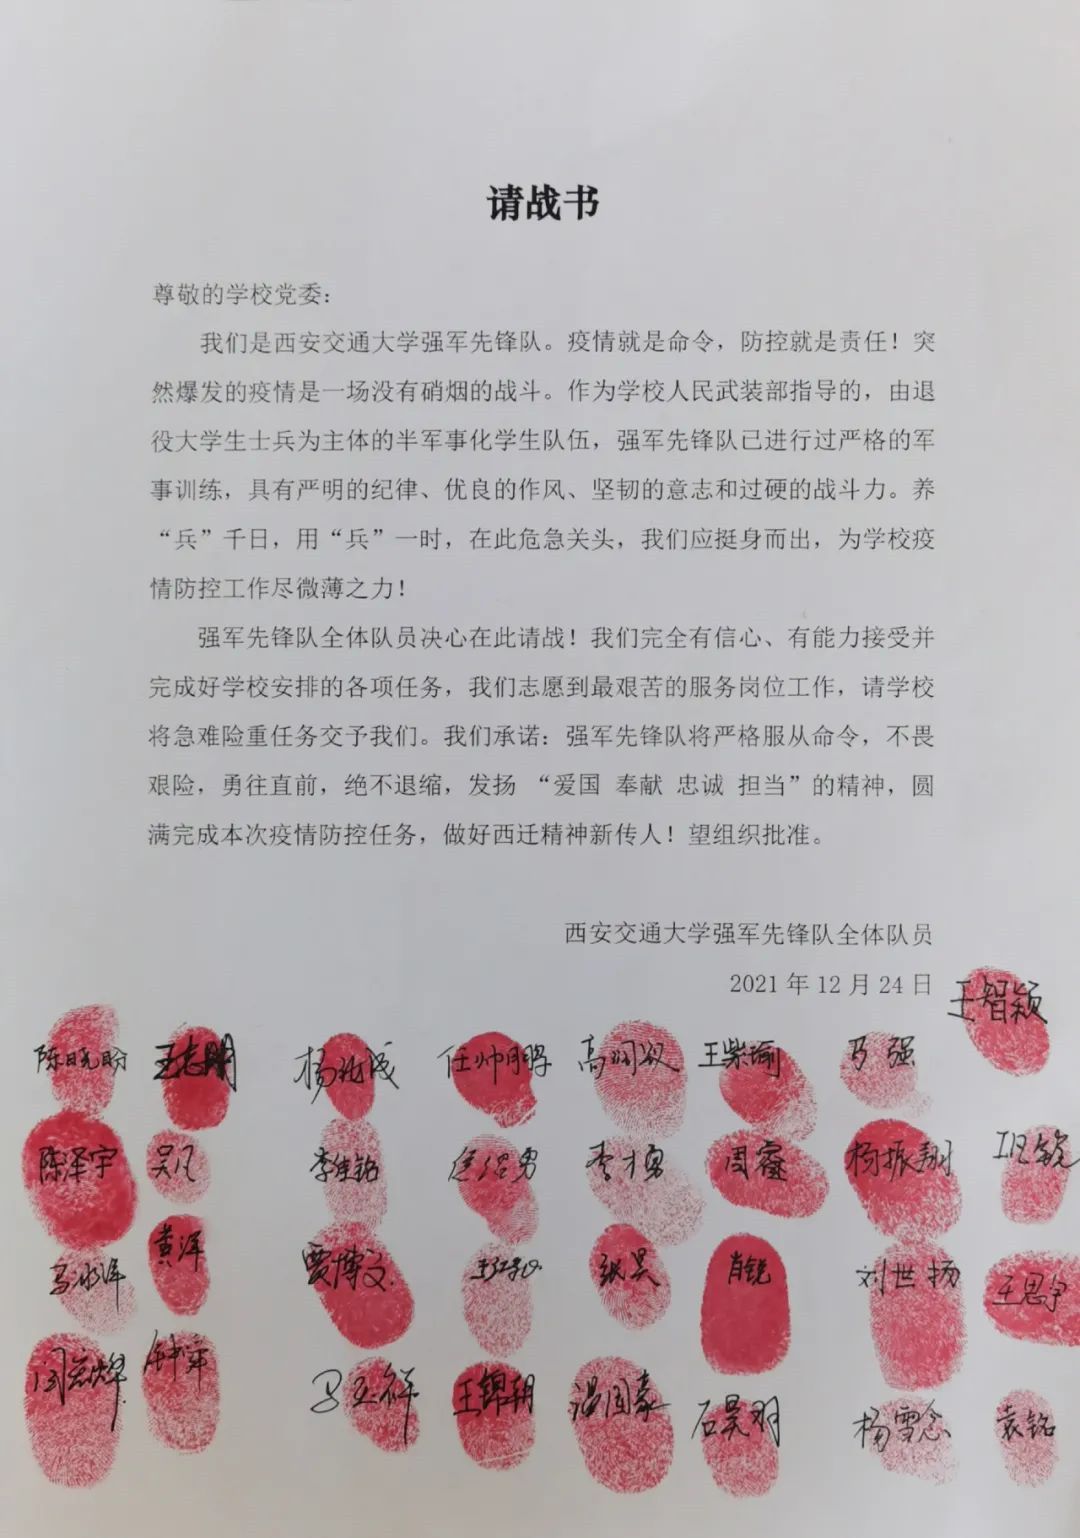 请战书
尊敬的学校党委：
我们是西安交通大学强军先锋队。疫情就是命令，防控就是责任！突
然爆发的疫情是一场没有硝烟的战斗。作为学校人民武装部指导的，由退
役大学生士兵为主体的半军事化学生队伍，强军先锋队已进行过严格的军
事训练，具有严明的纪律、优良的作风、坚韧的意志和过硬的战斗力。养
“兵”千日，用“兵”一时，在此危急关头，我们应挺身而出，为学校疫
情防控工作尽微薄之力！
强军先锋队全体队员决心在此请战！我们完全有信心、有能力接受并
完成好学校安排的各项任务，我们志愿到最艰苦的服务岗位工作，请学校
将急难险重任务交予我们。我们承诺：强军先锋队将严格服从命令，不畏
艰险，勇往直前，绝不退缩，发扬 “爱国 奉献 忠诚 担当”的精神，圆
满完成本次疫情防控任务，做好西迁精神新传人！望组织批准。
西安交通大学强军先锋队全体队员
2021 年 12 月 24 日
王智颖
陈晓盼 王志明 任帅鹏 王紫瑜
陈泽宇 吴凡 李佳铭 李才勇 周睿 杨振翔 巩锐
马冰洋 黄洋 贾博文 张昊 肖锐 刘世扬 王思宇
钟舜 马玉祥 王锦朝 温国豪 石昊羽 杨雪念 袁铭